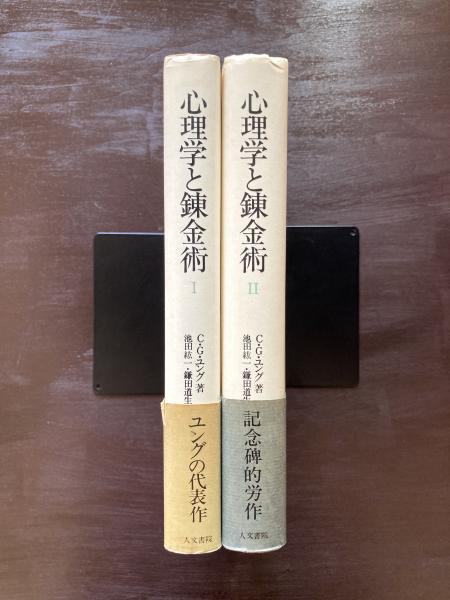 心理学と錬金術
I
C・G・ユング著
池田紘一・鎌田道生
ユングの代表作
人文書院
心理学と錬金術
II
C・G・ユング著
池田紘一・鎌田道生
記念碑的労作
人文書院